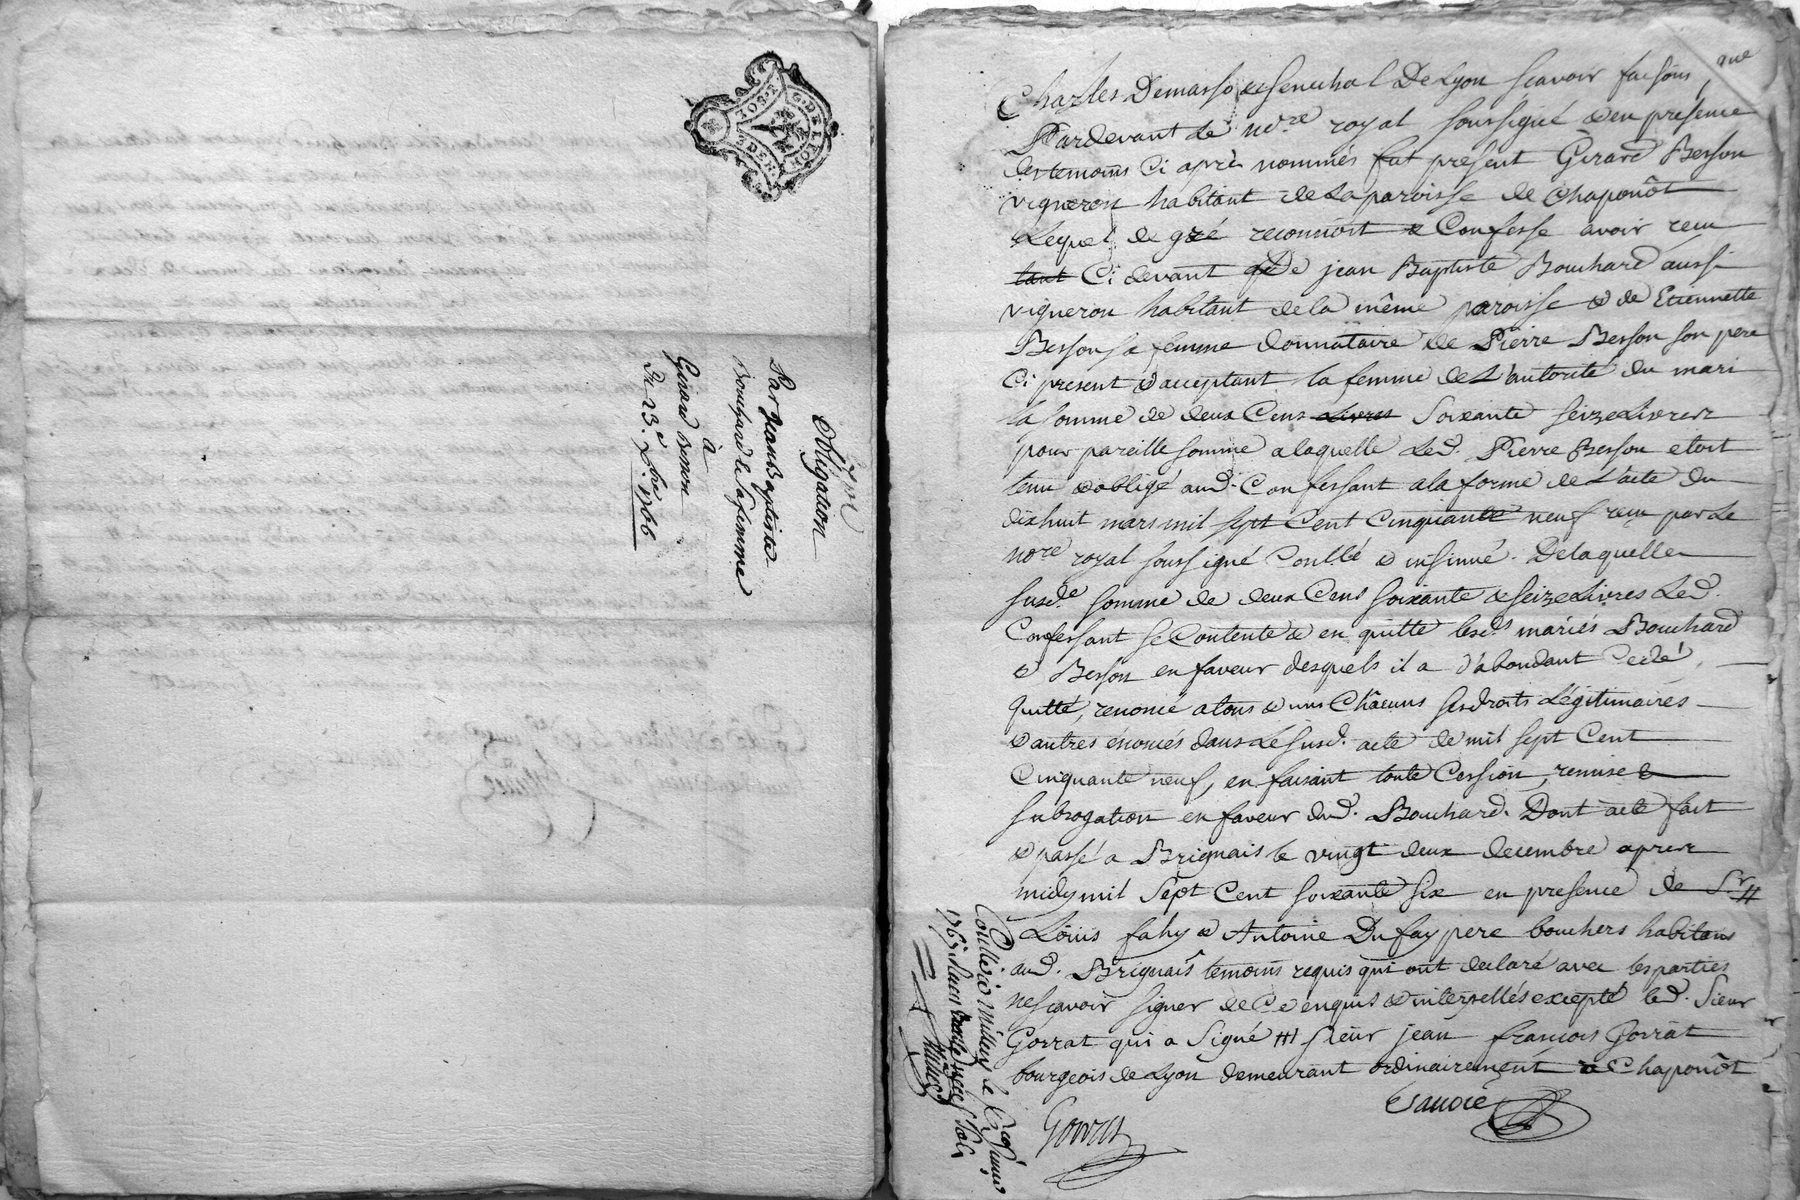 G. DE LYON
obligation
Par Jean Baptiste
Bouchard et sa femme
à
Girard Besson
Du 23.e Xbre 1766
Charles Demasso senechal De Lyon scavoir faisons que
Pardevant Le no.re royal soussigné & en presence
des temoins Ci aprés nommés fut présent Gérard Besson
vigneron habitant de La paroisse de Chaponôt
Lequel de gré reconnoit & Confesse avoir reçu
tant Ci devant que De jean Baptiste Bouchard aussi
vigneron habitant de la même paroisse & de Etiennette
Besson sa femme donnataire de Pierre Besson son pere
Ci present & acceptant la femme de L'autorité du mari
la somme de deux Cens Livres soixante seize Livres
pour pareille somme a laquelle Led. Pierre Besson etoit
tenu & obligé aud. Confessant a la forme de L'acte du
dixhuit mars mil sept Cent Cinquante neuf reçu par Le
no.re royal soussigné Con.llé & insinué. De laquelle
susd.e somme de deux Cens soixante & seize Livres Led.
Confessant se Contente & en quitte lesd.s mariés Bouchard
& Besson en faveur desquels il a d'abondant Cedé,
quitté, renoncé a tous & uns Châcuns ses droits Légitimaires
& autres énoncés dans Le susd. acte de mil sept Cent
Cinquante neuf, en faisant toute Cession, remise &
subrogation en faveur dud. Bouchard. Dont acte fait
& passé a Brignais le vingt deux decembre apres
midy mil sept Cent soixante six en presence de S.r #
Loüis fahy & Antoine Dufay pere bouchers habitans
aud. Brignais temoins requis qui ont declaré avec les parties
ne scavoir signer de Ce enquis & interpellés excepté led. Sieur
Gorrat qui a signé # sieur jean françois Gorrat
bourgeois de Lyon demeurant ordinairement a Chaponôt
Gorrat
Conllé a Millery le
1767 Recu treize sols